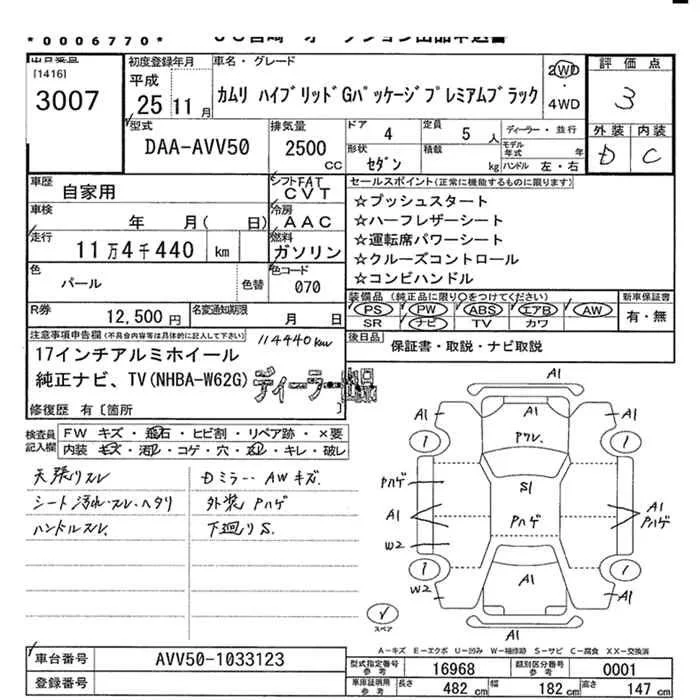 *0006770*
[1416]
3007
初度登録年月
平成
25年11月
車名・グレード
カムリ ハイブリッドGパッケージプレミアムブラック
2WD
・
4WD
評価点
3
外装 内装
D C
型式
DAA-AVV50
排気量
2500
CC
ドア 4
定員 5人
ディーラー・並行
モデル年式 年
形状 セダン
積載 kg
ハンドル 左・右
車歴
自家用
シフト FAT
CVT
セールスポイント(正常に機能するものに限ります)
☆プッシュスタート
☆ハーフレザーシート
☆運転席パワーシート
☆クルーズコントロール
☆コンビハンドル
車検
年 月( 日)
冷房
AAC
走行
11万4千440 km
燃料
ガソリン
色
パール
色替
色コード
070
装備品(純正品に限り○をつけてください)
PS PW ABS エアB AW
SR ナビ TV カワ
新車保証書
有・無
R券
12,500円
名変通知期限
月 日
注意事項申告欄(不具合内容等は具体的に記入して下さい)
114440km
17インチアルミホイール
純正ナビ、TV(NHBA-W62G)
修復歴 有〔箇所 〕
後日品
保証書・取説・ナビ取説
検査員
記入欄
FW キズ・飛石・ヒビ割・リペア跡・×要
内装 キズ・汚れ・コゲ・穴・スレ・キレ・破レ
天張りスレ
シート汚れ・スレ・ヘタリ
ハンドルスレ
Dミラー・AWキズ
外装Pハゲ
下廻りS
A1
A1
A1
Pワレ
A1
Pハゲ
S1
A1
Pハゲ
A1
Pハゲ
W2
W2
A1
A1
A1
スペア
A-キズ E-エクボ U-凹み W-補修跡 S-サビ C-腐食 XX-交換済
車台番号
AVV50-1033123
登録番号
型式指定番号
参考
16968
類別区分番号
参考
0001
車庫証明用
参考
長さ 482cm
幅 182cm
高さ 147cm